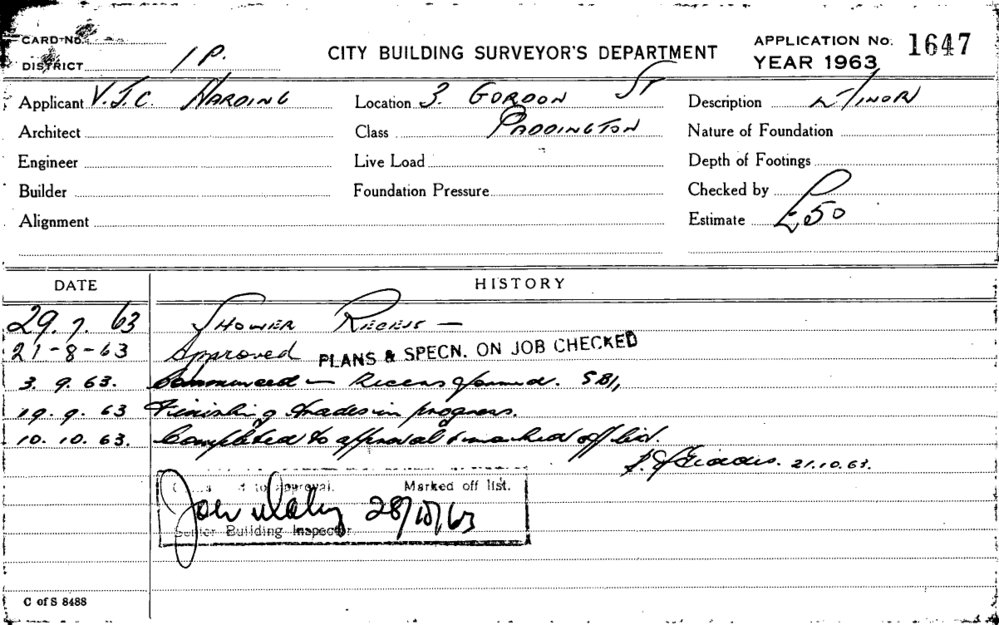 CARD No.
DISTRICT 1 P.
CITY BUILDING SURVEYOR'S DEPARTMENT
APPLICATION No. 1647
YEAR 1963
Applicant V. J. C. HARDING
Location 3. GORDON ST
Description MINOR
Architect
Class PADDINGTON
Nature of Foundation
Engineer
Live Load
Depth of Footings
Builder
Foundation Pressure
Checked by
Alignment
Estimate £50
DATE HISTORY
29. 7. 63 SHOWER RECESS —
21-8-63 Approved PLANS & SPECN. ON JOB CHECKED
3. 9. 63. Commenced — Recess formed.
19. 9. 63 Finishing trades in progress.
10. 10. 63. Completed to approval & marked off list.
21.10.63.
to approval. Marked off list.
28/10/63
Senior Building Inspector
C of S 8488